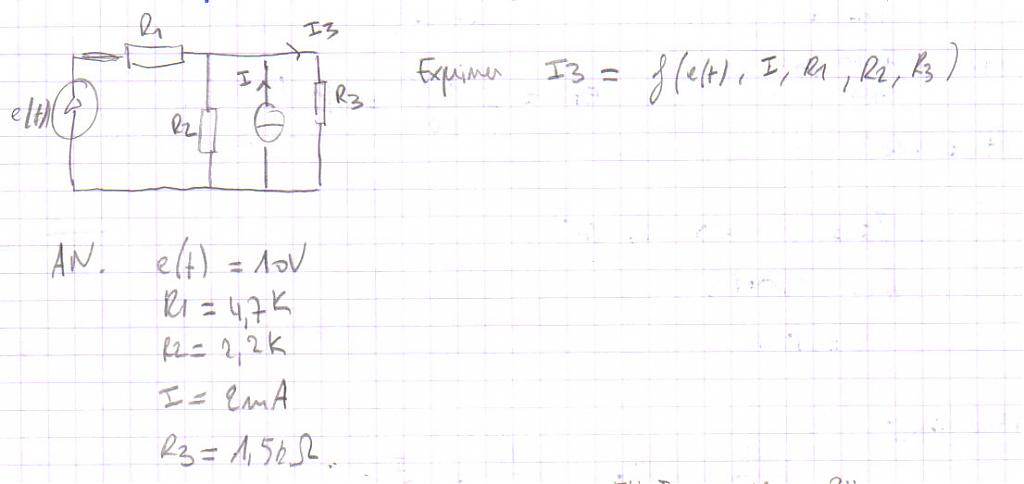 R1
I3
Exprimer I3 = f(e(t), I, R1, R2, R3)
I
R3
e(t)
R2
AN. e(t) = 10V
R1 = 4,7K
R2 = 2,2K
I = 2mA
R3 = 1,5kΩ.